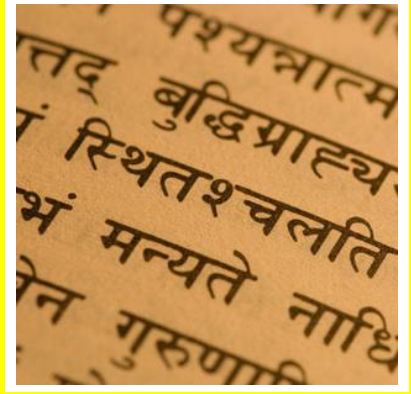 पश्यन्नात्म
त्तद् बुद्धिग्राह्य
स्थितश्चलति
भं मन्यते नाधि
न गुरुणापि